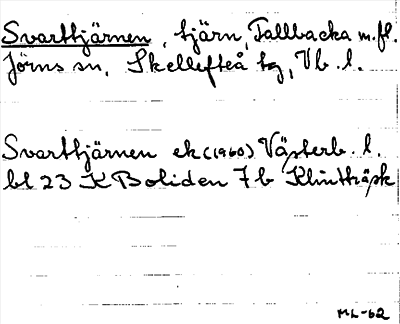 Svarttjärnen, tjärn, Tallbacka m.fl.
Jörns sn, Skellefteå tg, Vb. l.
Svarttjärnen ek (1960) Västerb. l.
bl 23 K Boliden 7 b Klintträsk
ML-62